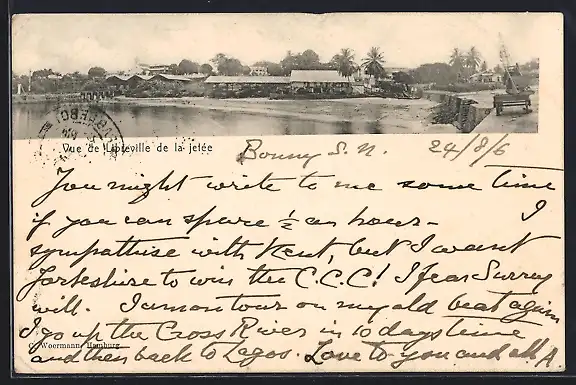 Vue de Libreville de la jetée
Bonny S. N. 24/8/6
You might write to me some time
if you can spare ½ an hour - I
sympathise with Kent, but I want
Yorkshire to win the C.C.C! I fear Surrey
will. I am on tour on my old beat again
I go up the Cross River in 10 days time
C. Woermann, Hamburg.
and then back to Lagos. Love to you and all A